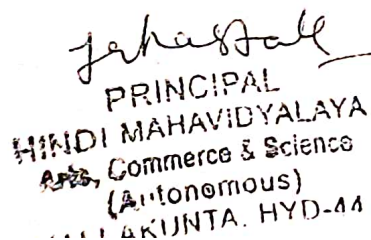 PRINCIPAL
HINDI MAHAVIDYALAYA
Arts, Commerce & Science
(Autonomous)
HYD-44